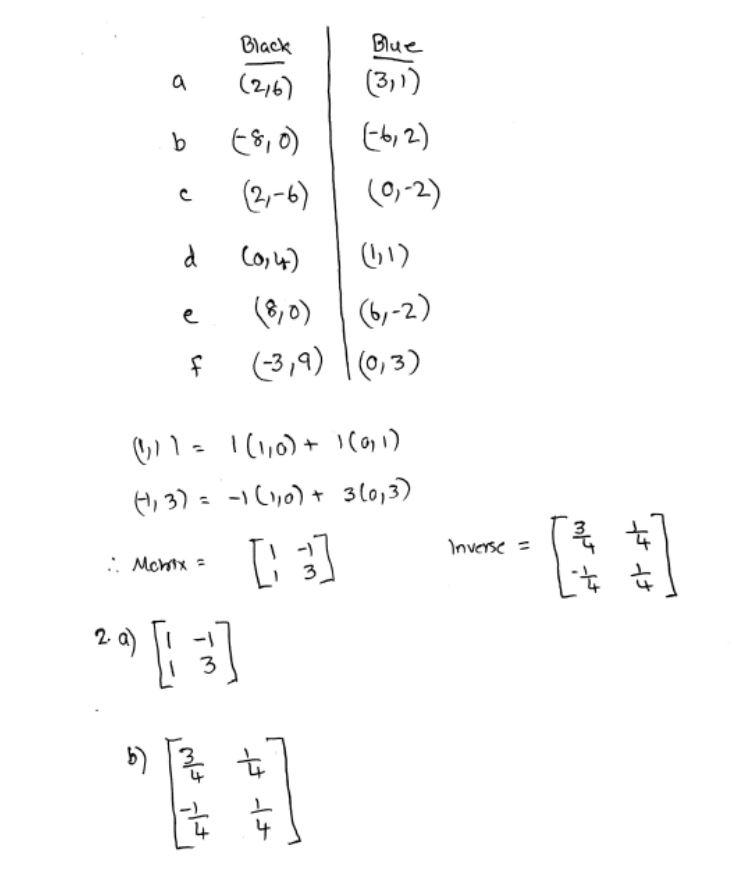 Black Blue
a (2,6) (3,1)
b (-8,0) (-6,2)
c (2,-6) (0,-2)
d (0,4) (1,1)
e (8,0) (6,-2)
f (-3,9) (0,3)
(1,1) = 1(1,0) + 1(0,1)
(-1,3) = -1(1,0) + 3(0,3)
∴ Matrix = [1 -1
1 3]
Inverse = [3/4 1/4
-1/4 1/4]
2. a) [1 -1
1 3]
b) [3/4 1/4
-1/4 1/4]